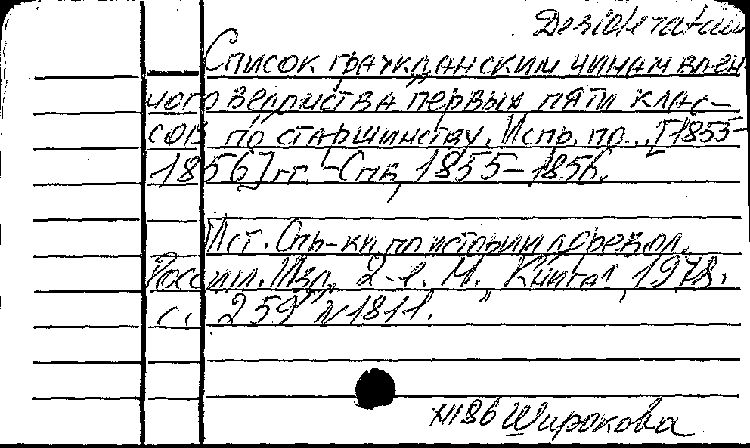 Desiderata
Список гражданским чинам воен-
ного ведомства первых пяти клас-
сов по старшинству. Испр. по... [1855-
1856] гг. - Спб, 1855-1856.
Ист. Спр-ки по истории доревол.
России. Изд. 2-е. М. "Книга", 1978.
с. 259 №1811.
XII 86 Широкова